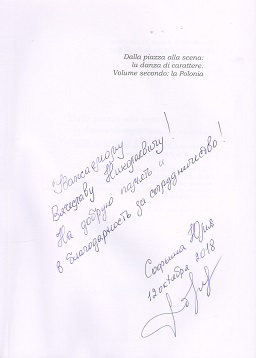 Dalla piazza alla scena:
la danza di carattere.
Volume secondo: la Polonia
Уважаемому
Вячеславу Николаевичу!
На добрую память и
в благодарность за сотрудничество!
Юлия
12 октября 2018